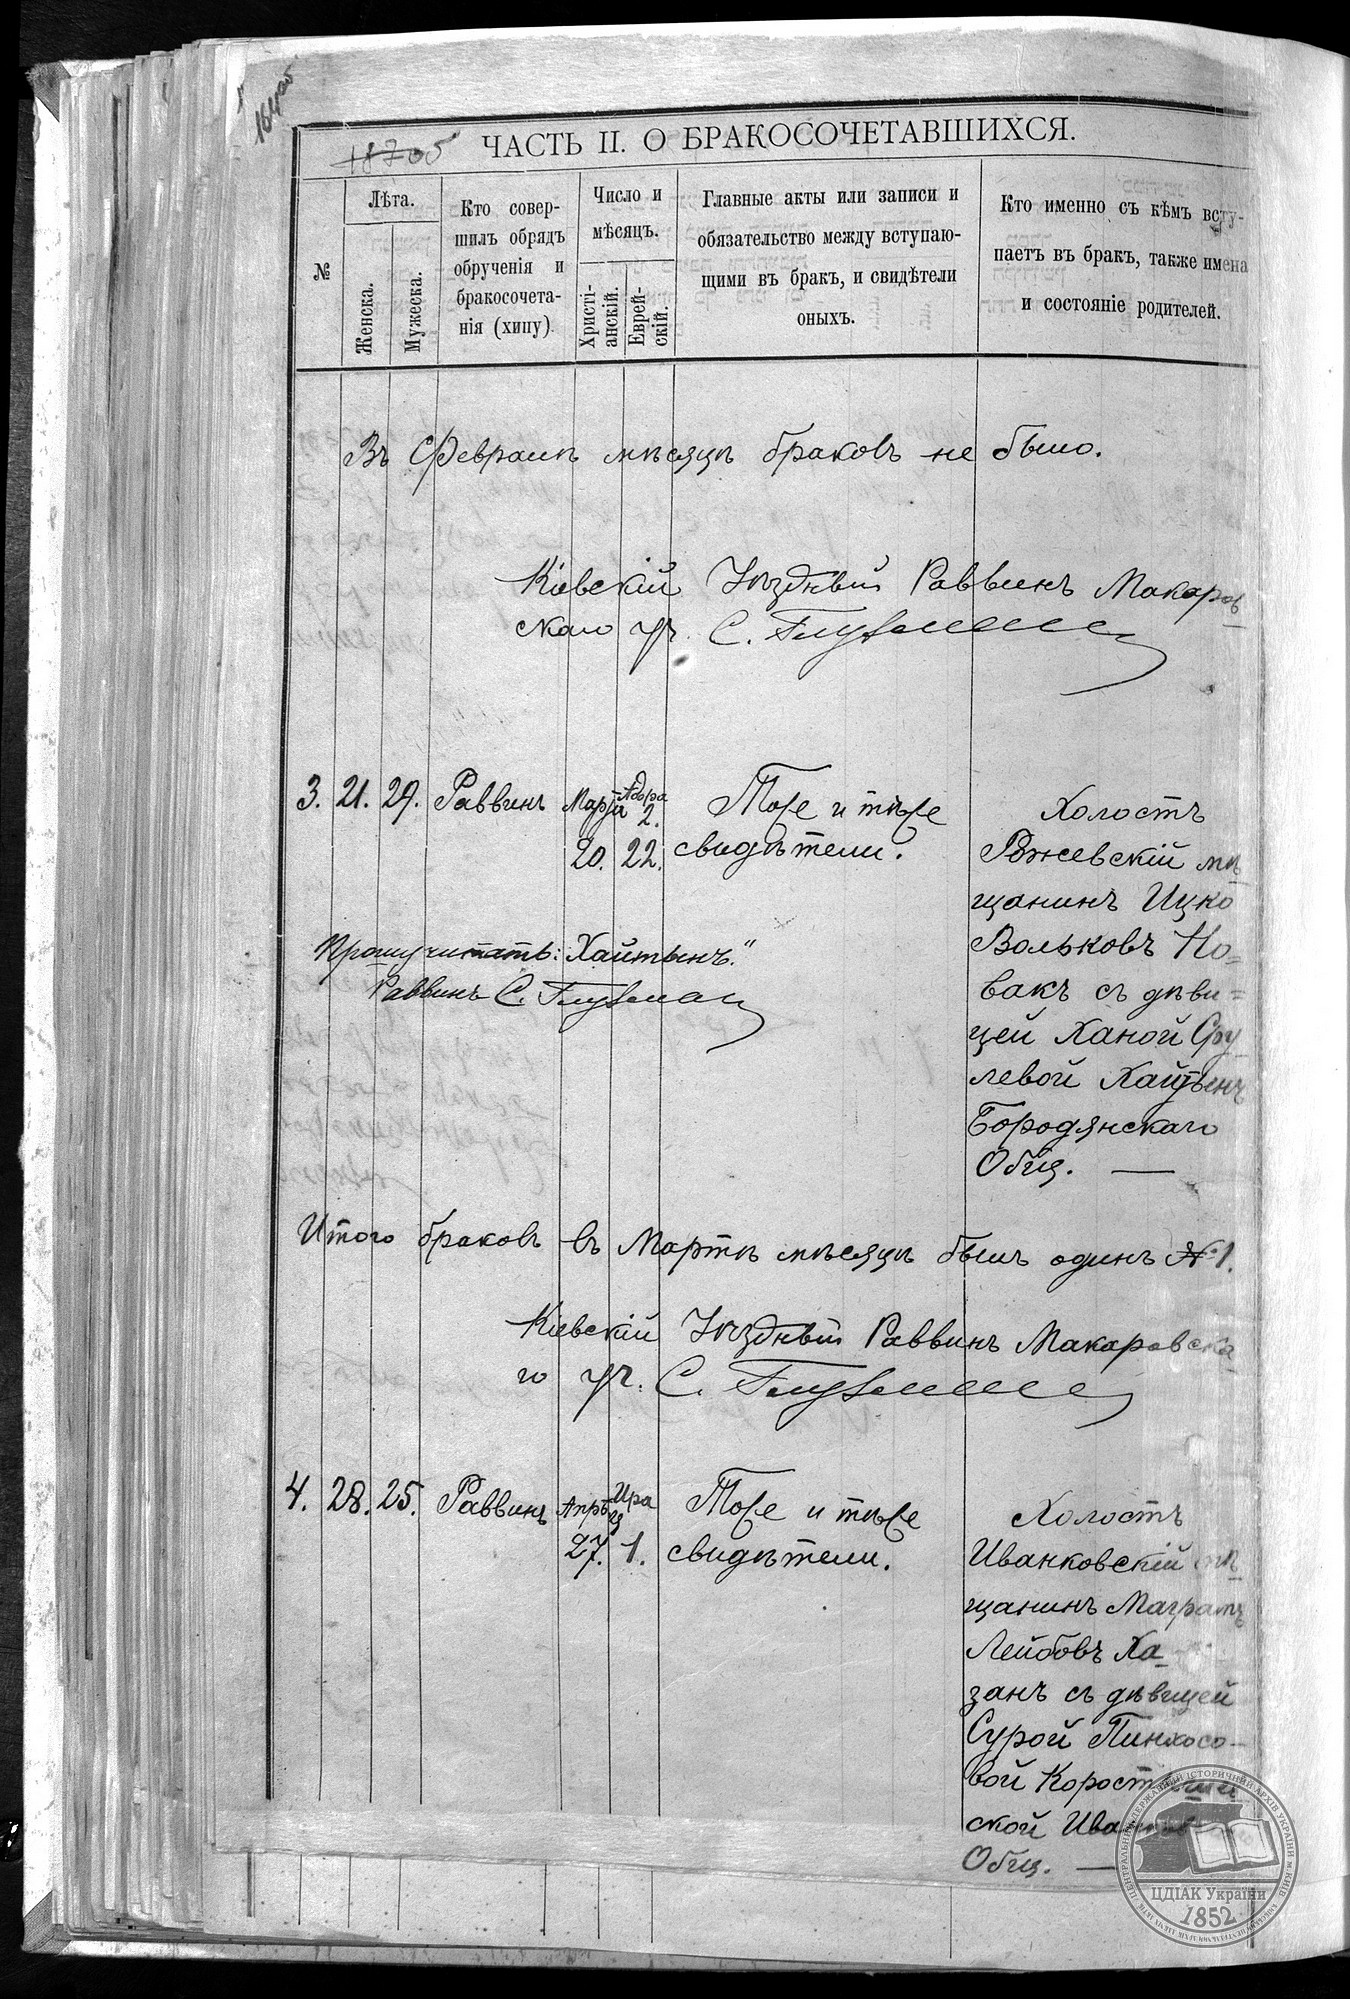 18705
ЧАСТЬ II. О БРАКОСОЧЕТАВШИХСЯ.
№
Лѣта.
Женска.
Мужеска.
Кто совер-
шилъ обрядъ
обрученія и
бракосочета-
нія (хипу).
Число и
мѣсяцъ.
Христі-
анскій.
Еврей-
скій.
Главные акты или записи и
обязательство между вступаю-
щими въ бракъ, и свидѣтели
оныхъ.
Кто именно съ кѣмъ всту-
паетъ въ бракъ, также имена
и состояніе родителей.
Въ Февралѣ мѣсяцѣ браковъ не было.
Кіевскій Уѣздный Раввинъ Макаров
скаго уч. С. Глузман
3. 21. 29. Раввинъ Марта 20. Адара 2. 22.
Тоже и тѣже
свидѣтели.
Холостъ
Ржевскій мѣ
щанинъ Ицко
Вольковъ Но=
вакъ съ дѣви=
цей Ханой Сру
левой Хайтынъ
Бородянскаго
Общ. —
Прошу читать: Хайтынъ."
Раввинъ С. Глузман
Итого браковъ въ Мартѣ мѣсяцѣ былъ одинъ № 1.
Кіевскій Уѣздный Раввинъ Макаровска
го уч. С. Глузман
4. 28. 25. Раввинъ Апрѣ 27. Ира 1.
Тоже и тѣже
свидѣтели.
Холостъ
Иванковскій мѣ
щанинъ
Лейбовъ Ха
занъ съ дѣвицей
Сурой Пинхосо
вой
ской
Общ. —
ЦЕНТРАЛЬНИЙ ДЕРЖАВНИЙ ІСТОРИЧНИЙ АРХІВ УКРАЇНИ М. КИЇВ
ЦДІАК України
1852